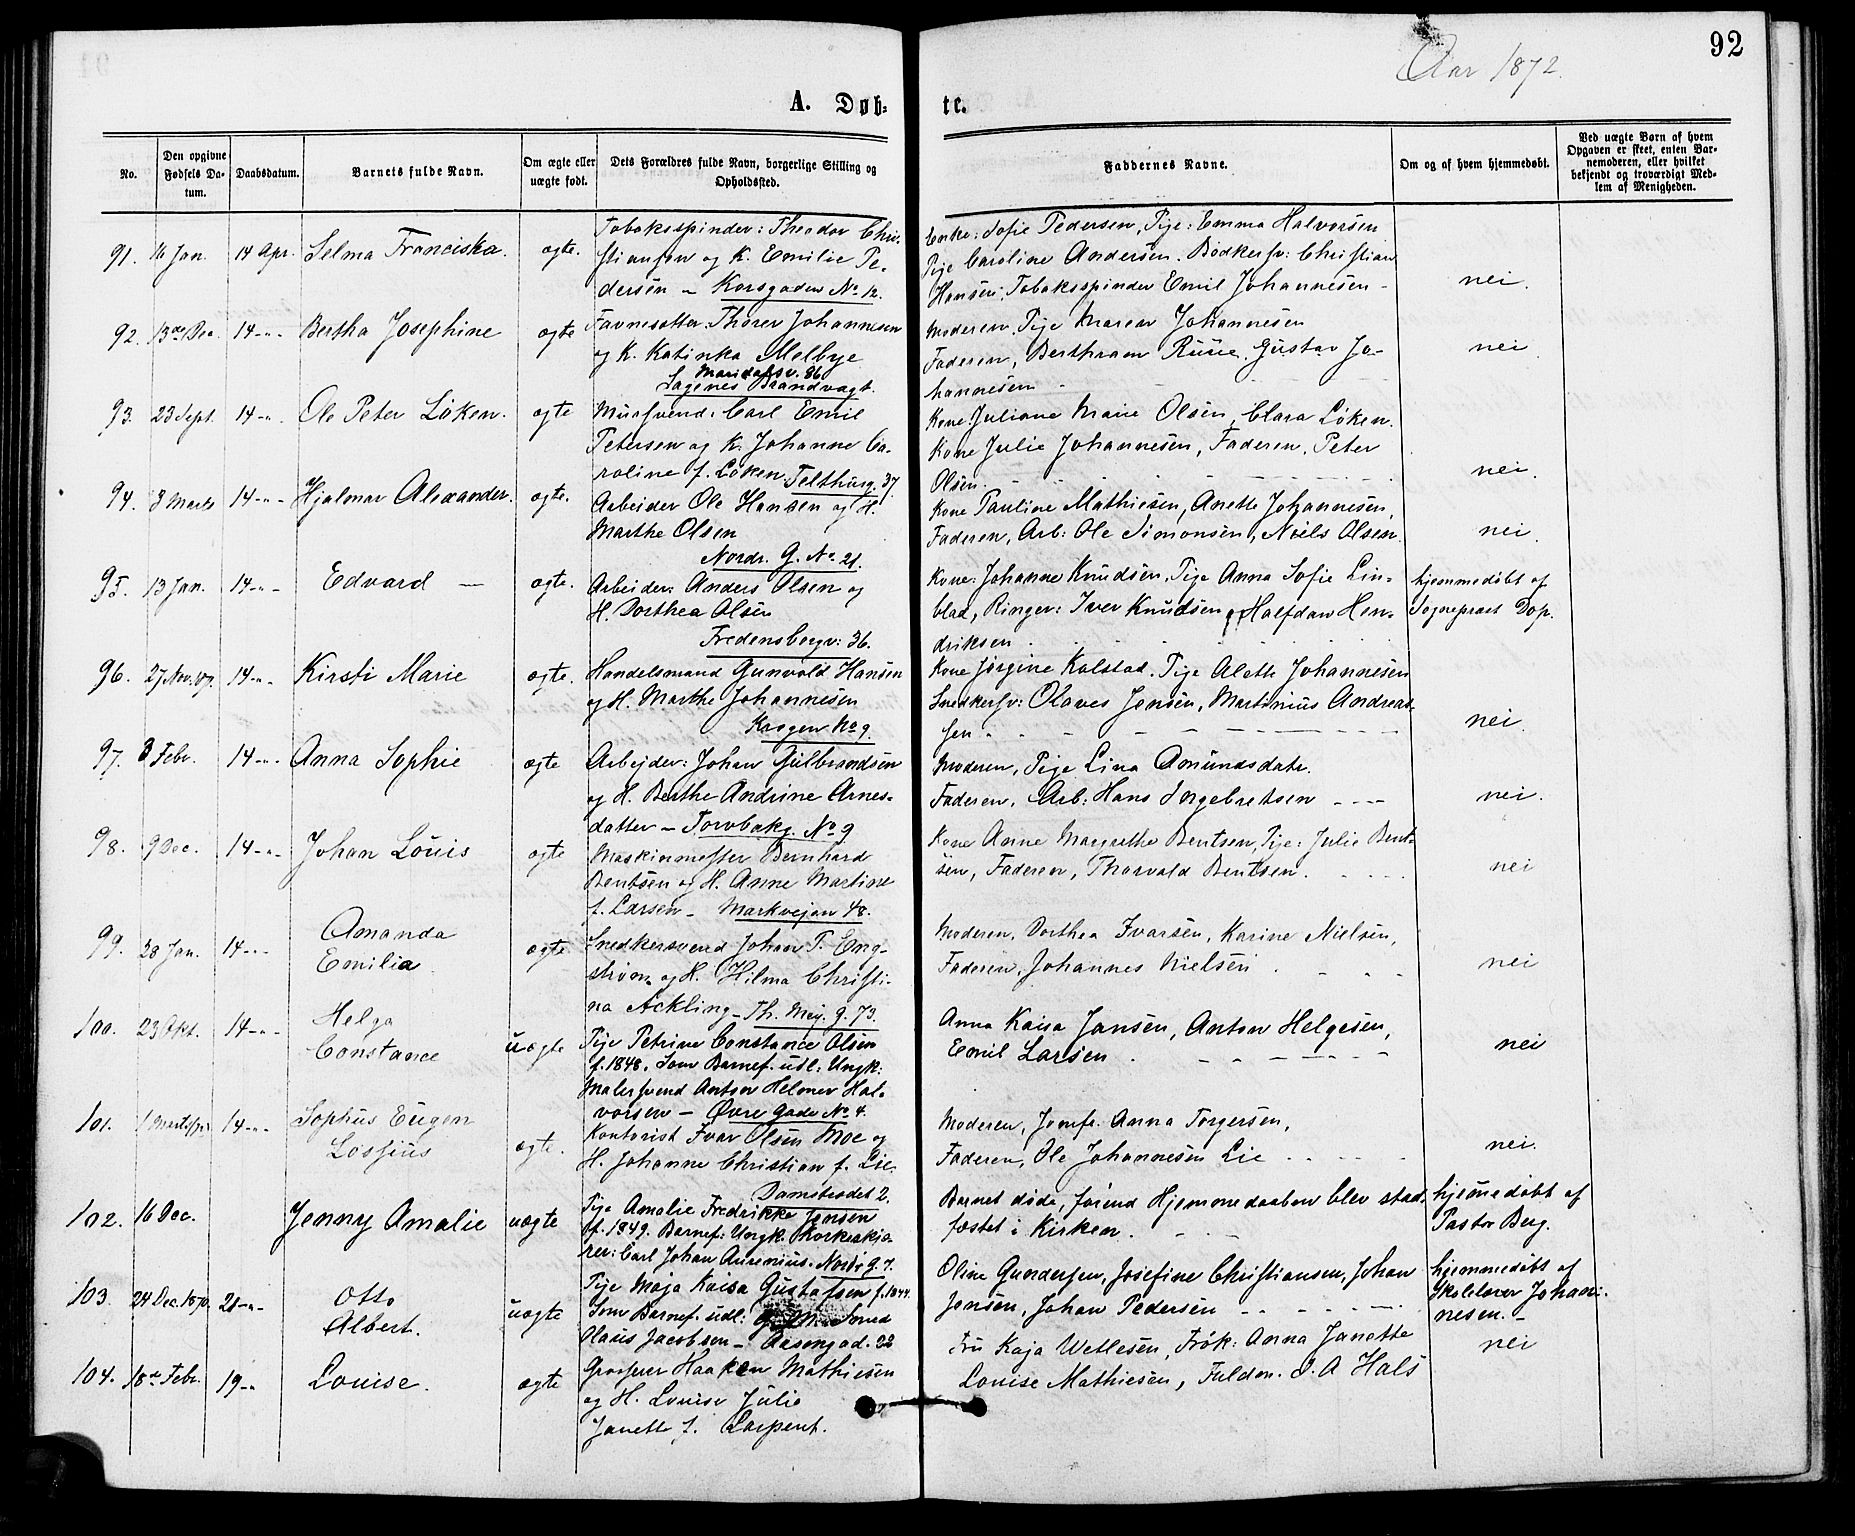 92
Aar 1872.
A. Døb-
te.
No.
Den opgivne
Fødsels Da-
tum.
Daabsdatum.
Barnets fulde Navn.
Om ægte eller
uægte født.
Dets Forældres fulde Navn, borgerlige Stilling og
Opholdssted.
Faddernes Navne.
Om og af hvem hjemmedøbt.
Ved uægte Børn af hvem
Opgaven er skeet, enten Bar-
nemoderen, eller hvilket
bekjendt og troværdigt Med-
lem af Menigheden.
91. 16 Jan. 14 Apr. Selma Franciska. ægte.
Tobaksspinder: Theodor Chri-
stiansen og K. Emilie Pe-
dersen – Korsgaden No 12.
Enke: Sofie Pedersen, Pige: Emma Halvorsen
Pige Caroline Andersen. Bødkersv: Christian
Hansen, Tobaksspinder Emil Johannesen –
nei.
92. 13de Dec. 14-"- Bertha Josephine ægte
Favnesætter Thorer Johannesen
og K. Katinka Melbye
Maridalsv. 86
Sagenes Brandvagt.
Moderen, Pige Maren Johannesen
Faderen, Berthram Ruue, Gustav Jo-
hannesen
nei
93. 23 Sept. 14-"- Ole Peter Løken. ægte
Mursvend: Carl Emil
Petersen og K. Johanne Ca-
roline f. Løken. Telthusg. 37.
Kone: Juliane Marie Olsen, Clara Løken.
Kone Julie Johannesen, Faderen, Peter
Olsen.
nei.
94. 8 Marts 14-"- Hjalmar Alexander. ægte.
Arbeider Ole Hansen og H.
Marthe Olsen
Nordr. G. No 21.
Kone Pauline Mathiesen, Anette Johannesen,
Faderen, Arb: Ole Simonsen, Niels Olsen.
nei.
95. 13 Jan. 14-"- Edvard – ægte.
Arbeider: Anders Olsen og
H. Dorthea Olsen
Fredensborgv: 36.
Kone: Johanne Knudsen, Pige Anna Sofie Lin-
blad, Ringer: Iver Knudsen, Halfdan Hen-
driksen.
hjemmedøbt af
Sognepræst Dop.
96. 27 Nov. 14-"- Kirsti Marie ægte.
Handelsmand Gunvold Hansen
og H. Marthe Johannesen
Krogen No 9.
Kone Jørgine Kolstad. Pige Alette Johannesen
Snedkersv: Olaves Jensen, Martinius Andreas-
sen.
nei.
97. 8 Febr. 14-"- Anna Sophie ægte
Arbejder: Johan Gulbrandsen
og H. Berthe Andrine Arnes-
datter – Torvbakg. No 9
Moderen, Pige Lina Amundsdatr.
Faderen, Arb: Hans Ingebretsen
nei.
98. 9 Dec. 14-"- Johan Louis ægte
Maskinmester Bernhard
Bentsen og H. Anne Martine
f. Larsen – Markvejen 48.
Kone Anne Margrethe Bentsen, Pige: Julie Bent-
sen, Faderen, Thorvald Bentsen.
nei
99. 28 Jan. 14-"- Amanda
Emilia ægte
Snedkersvend Johan T. Eng-
strøm og H. Hilma Christi-
na Ackling – Th. Mey. g. 73.
Moderen, Dorthea Ivarsen, Karine Nielsen,
Faderen, Johannes Nielsen.
nei
100. 23 Okt. 14-"- Helga
Constance uægte
Pige Petrine Constance Olsen
f. 1848. Som Barnef. udl: Ungk:
Malersvend Anton Helmer Hal-
vorsen – Øvre Gade No 4.
Anna Kaisa Jansen, Anton Helgesen,
Emil Larsen.
nei
101. 14-"- Sophus Eugen
Lossius ægte.
Kontorist Ivar Olsen Moe og
H. Johanne Christian f. Lie.
Damstrædet 2.
Moderen, Jomfr. Anna Torgersen,
Faderen, Ole Johannesen Lie
nei.
102. 16 Dec. Jenny Amalie uægte
Pige Amalie Fredrikke Jensen
f. 1849. Barnef: Ungk. Korkeskjæ-
rer: Carl Johan Aurenius. Nordr g. 7.
Barnet døde, førend Hjemmedaaben blev stad-
fæstet i Kirken.
hjemmedøbt af
Pastor Berg.
103. 24 Dec. 1870. 21-"- Otto
Albert. uægte
Pige Maja Kaisa Gustafsen f. 1844.
Som Barnef. udl: Smed
Olaus Jacobsen – Aasengad. 22
Oline Gundersen, Josefine Christiansen, Johan
Jensen, Johan Pedersen
hjemmedøbt af
Skolelærer Johan-
nesen. –
104. 18de Febr. 19-" Louise. ægte
Grosserer Haaken Mathiesen
og H. Louise Julie
Janette f. Larpent.
Fru Kaja Wetlesen, Frøk: Anna Janette
Louise Mathiesen, Fuldm. I. A Hals
nei